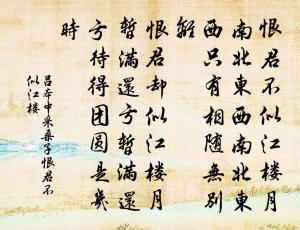 恨君不似江楼月
南北東西南北東
西只有相随無别
離
恨君却似江楼月
暫滿還亏暫滿還
亏待得团圆是幾
時
吕本中采桑子恨君不
似江楼